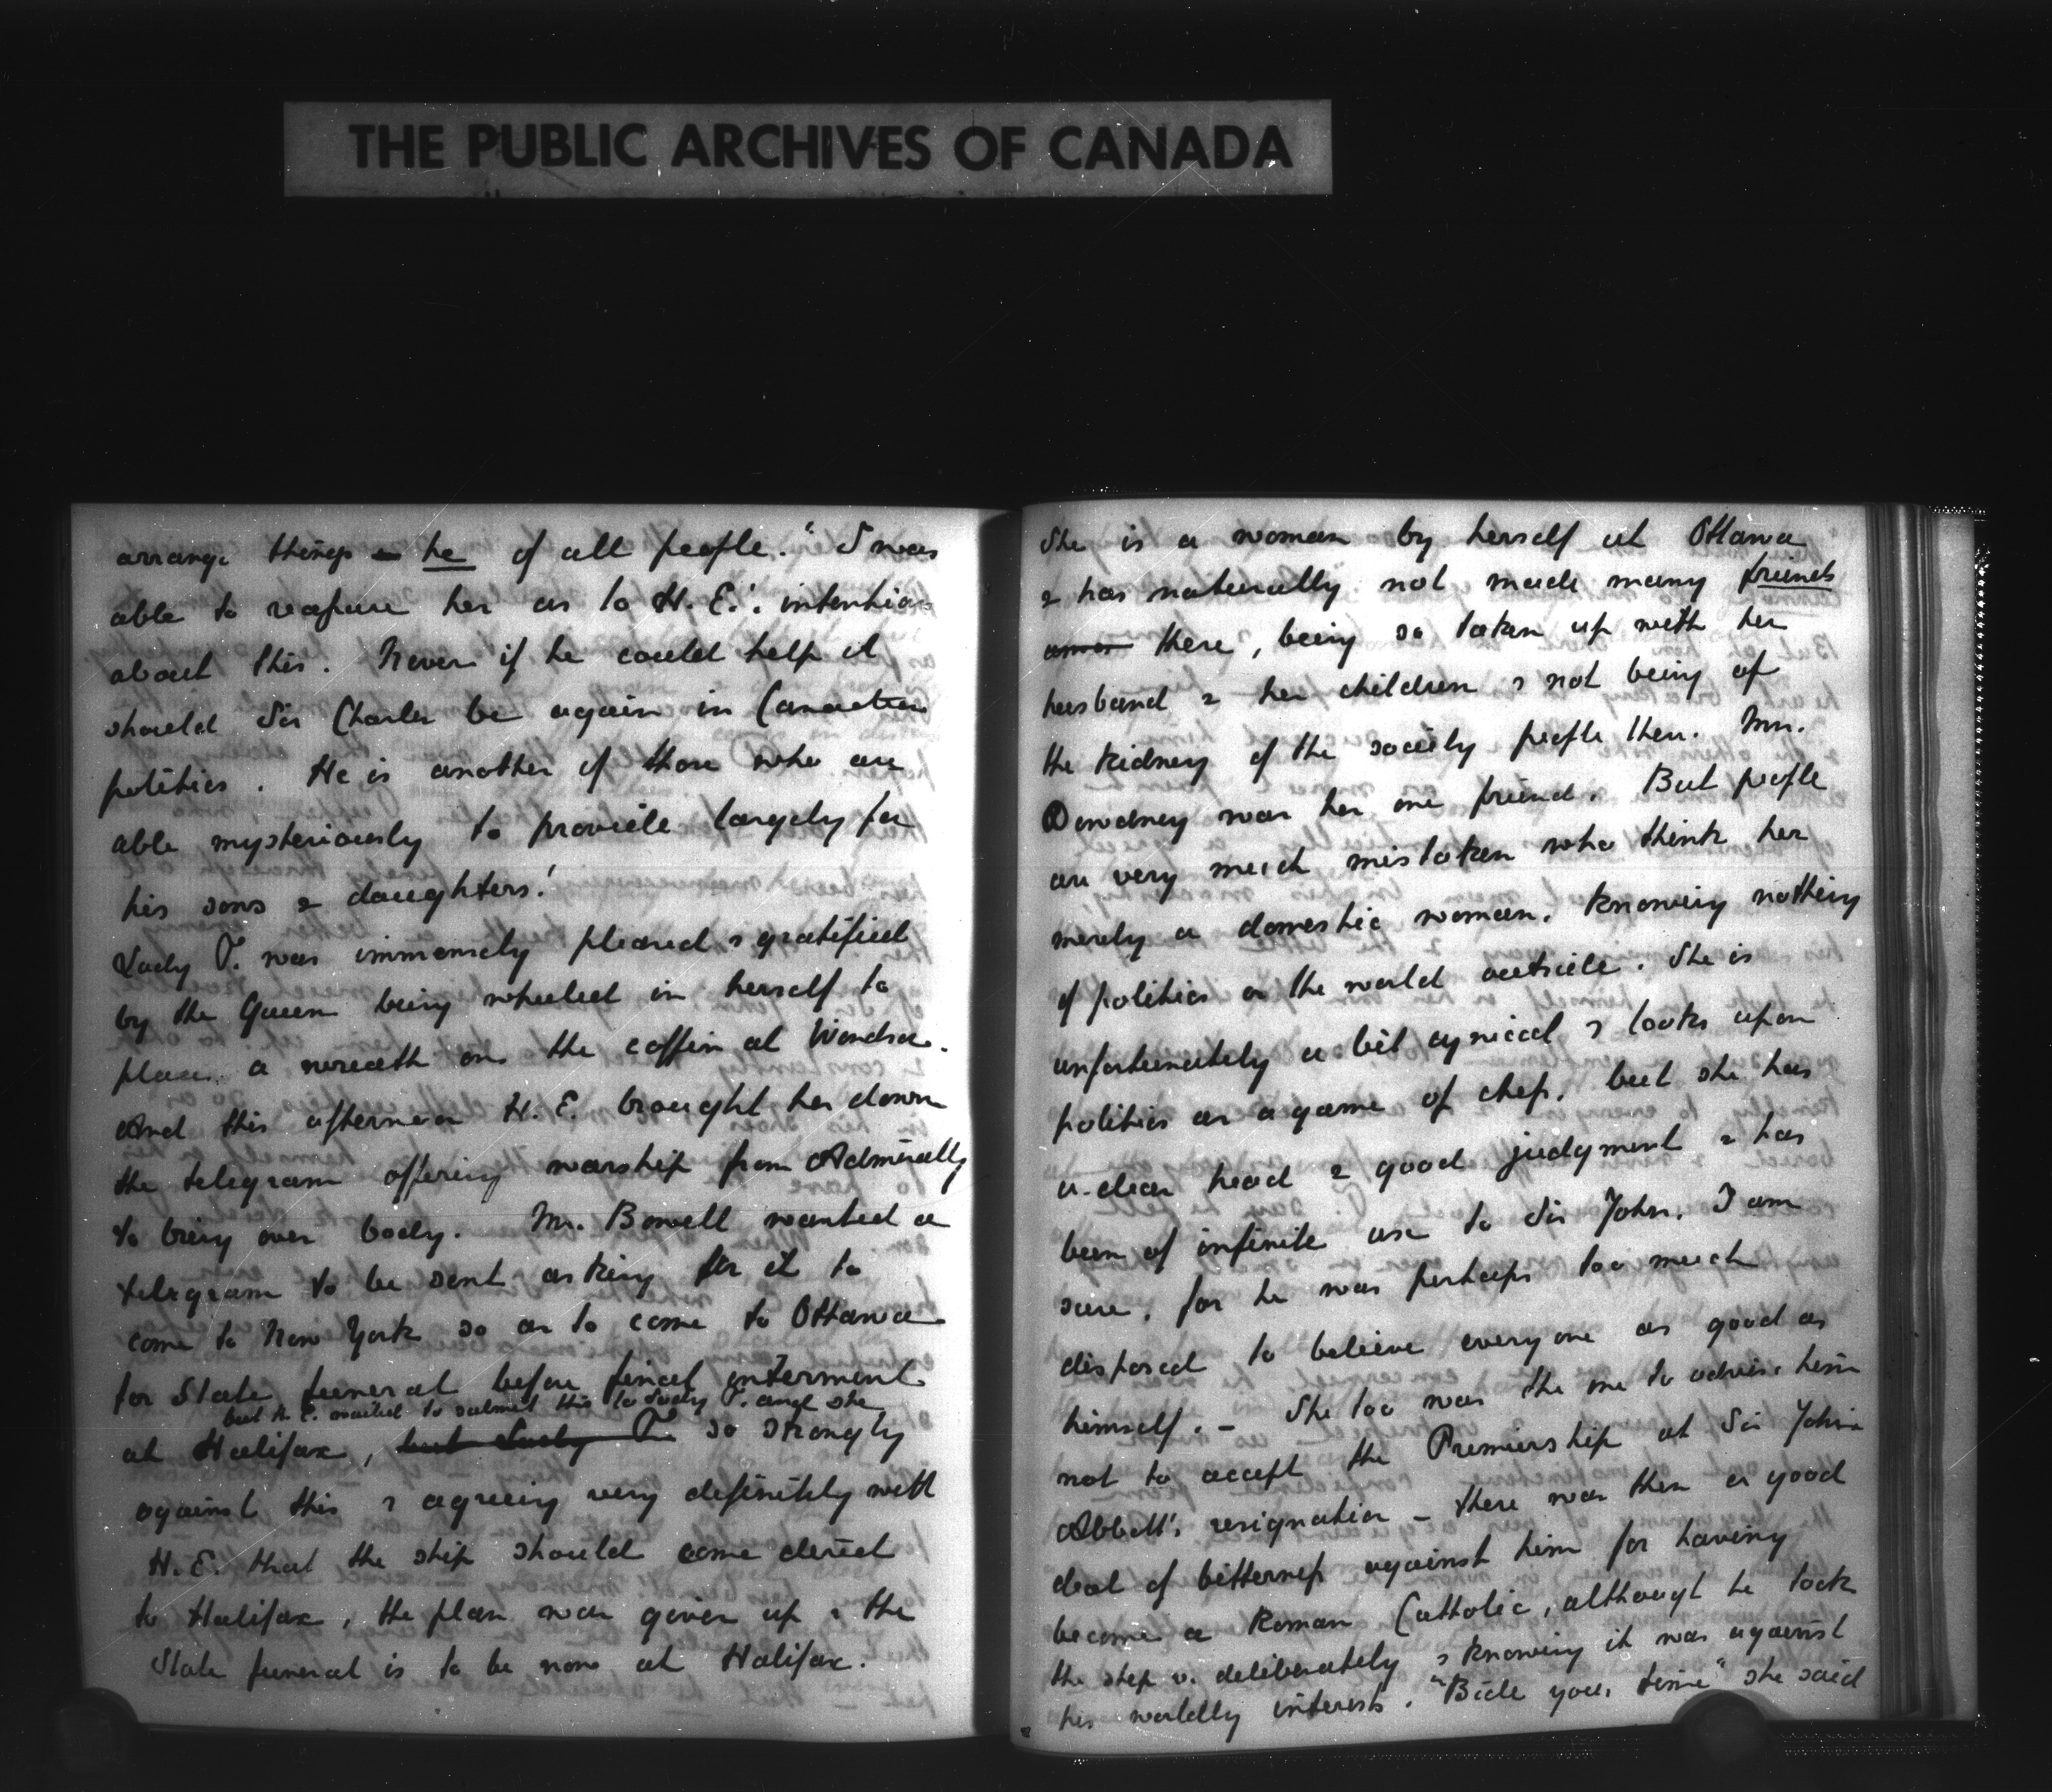 THE PUBLIC ARCHIVES OF CANADA
arrange things - he of all people." I was
able to reassure her as to H. E.'s intentions
about this. Never if he could help it
should Sir Charles be again in Canadian
politics. He is another of those who are
able mysteriously to provide largely for
his sons & daughters!
Lady T. was immensely pleased & gratified
by the Queen being wheeled in herself to
place a wreath on the coffin at Windsor.
And this afternoon H. E. brought her down
the telegram offering warship from Admiralty
to bring over body. Mr. Bowell wanted a
telegram to be sent asking for it to
come to New York so as to come to Ottawa
for State funeral before final interment
but H. E. wanted to submit this to Lady T. and she
at Halifax, but Lady T. so strongly
against this & agreeing very definitely with
H. E. that the ship should come direct
to Halifax, the plan was given up & the
State funeral is to be now at Halifax.
She is a woman by herself at Ottawa
& has naturally not made many friends
there, being so taken up with her
husband & her children & not being of
the kidney of the society people then. Mrs.
Dewdney was her one friend. But people
are very much mistaken who think her
merely a domestic woman, knowing nothing
of politics or the world outside. She is
unfortunately a bit cynical & looks upon
politics as a game of chess, but she has
a clear head & good judgment & has
been of infinite use to Sir John, I am
sure, for he was perhaps too much
disposed to believe everyone as good as
himself. - She too was the one to advise him
not to accept the Premiership at Sir John
Abbott's resignation - there was then a good
deal of bitterness against him for having
become a Roman Catholic, although he took
the step v. deliberately & knowing it was against
his worldly interests. "Bide your time" she said